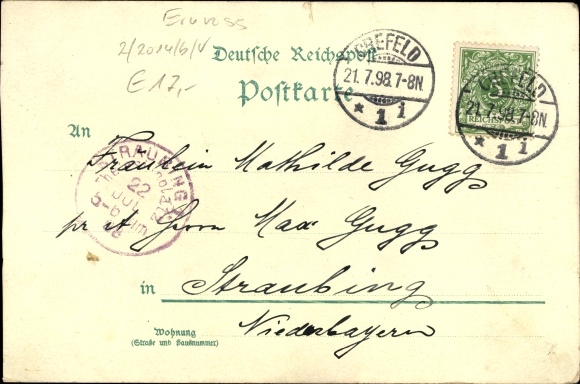 2/2014/6/V
E 17,-
Deutsche Reichspost
Postkarte
CREFELD
21.7.98.7-8N.
* 1 i
CREFELD
21.7.98.7-8N.
* 1 i
REICHSPOST
An
Fräulein Mathilde Gugg
STRAUBING
22
JUL
5-6
98
pr. at Herrn Max Gugg
in Straubing
Niederbayern
Wohnung
(Straße und Hausnummer)